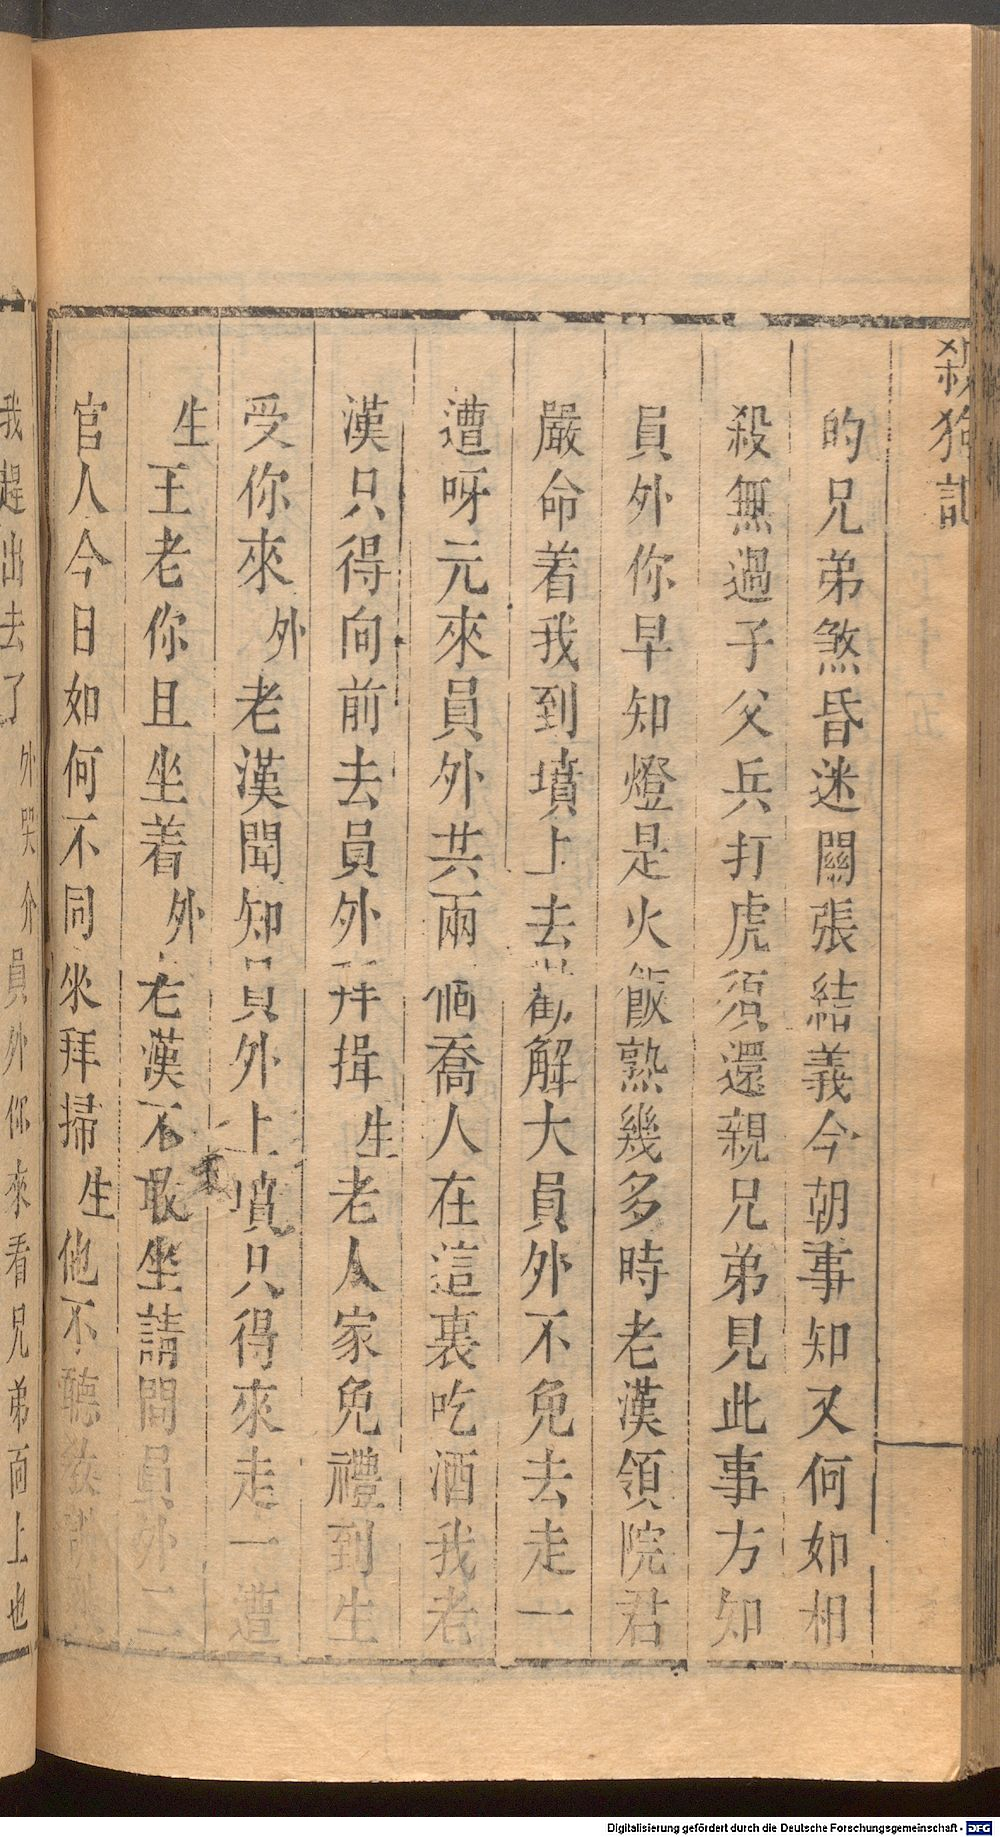 殺狗記
的兄弟煞昏迷關張結義今朝事知又何如相
殺無過子父兵打虎須還親兄弟見此事方知
員外你早知燈是火飯熟幾多時老漢領院君
嚴命着我到墳上去勸解大員外不免去走一
遭呀元來員外共兩個喬人在這裏吃酒我老
漢只得向前去員外拜揖生老人家免禮到生
受你來外老漢聞知員外上墳只得來走一遭
生王老你且坐着外老漢不敢坐請問員外二
官人今日如何不同來拜掃生他不聽教訓
我趕出去了外哭介員外你來看兄弟面上也
Digitalisierung gefördert durch die Deutsche Forschungsgemeinschaft - DFG